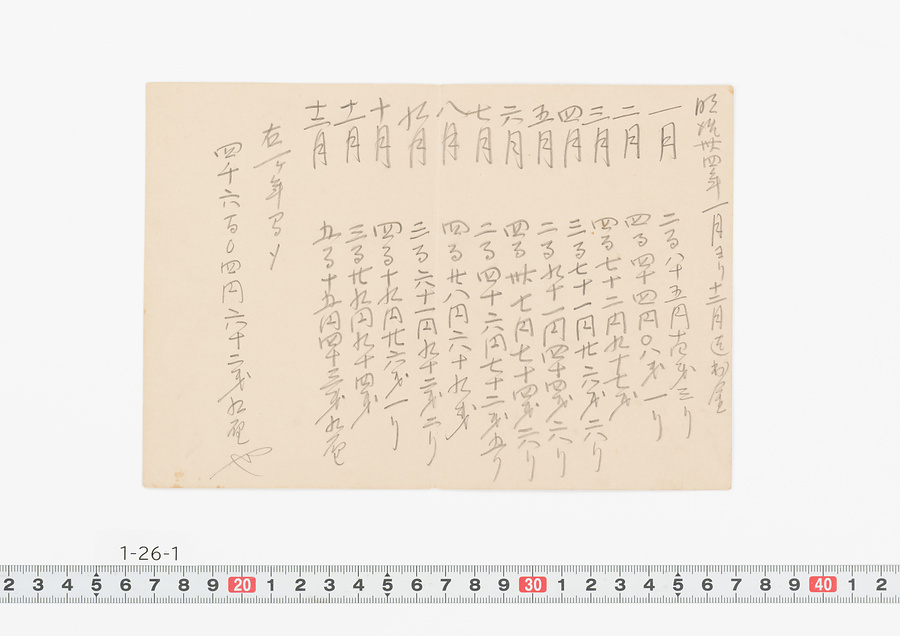 明治卅四年一月ヨリ十二月迄
一月 二百八十五円 銭三リ
二月 四百四十四円〇八銭一リ
三月 四百七十二円九十七銭
四月 三百七十一円廿六銭六リ
五月 二百九十一円四十四銭六リ
六月 四百卅七円七十四銭六リ
七月 二百四十六円七十二銭五リ
八月 四百廿八円六十九銭
九月 三百六十一円九十二銭二リ
十月 四百十九円廿六銭一リ
十一月 三百廿九円九十四銭
十二月 五百十五円四十三銭九厘
右一ヶ年間〆
四千六百〇四円六十二銭九厘
也
1-26-1
2 3 4 5 6 7 8 9 20 1 2 3 4 5 6 7 8 9 30 1 2 3 4 5 6 7 8 9 40 1 2